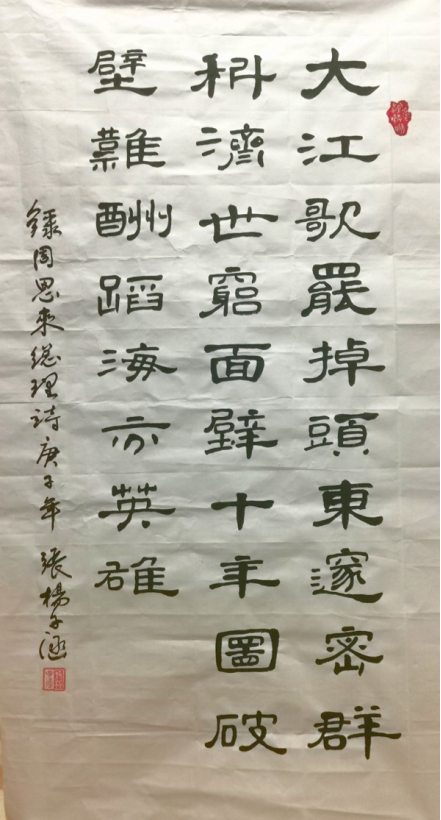 大江歌罷掉頭東邃密群
科濟世窮面壁十年圖破
壁難酬蹈海亦英雄
錄周恩來總理詩庚子年 張楊子涵